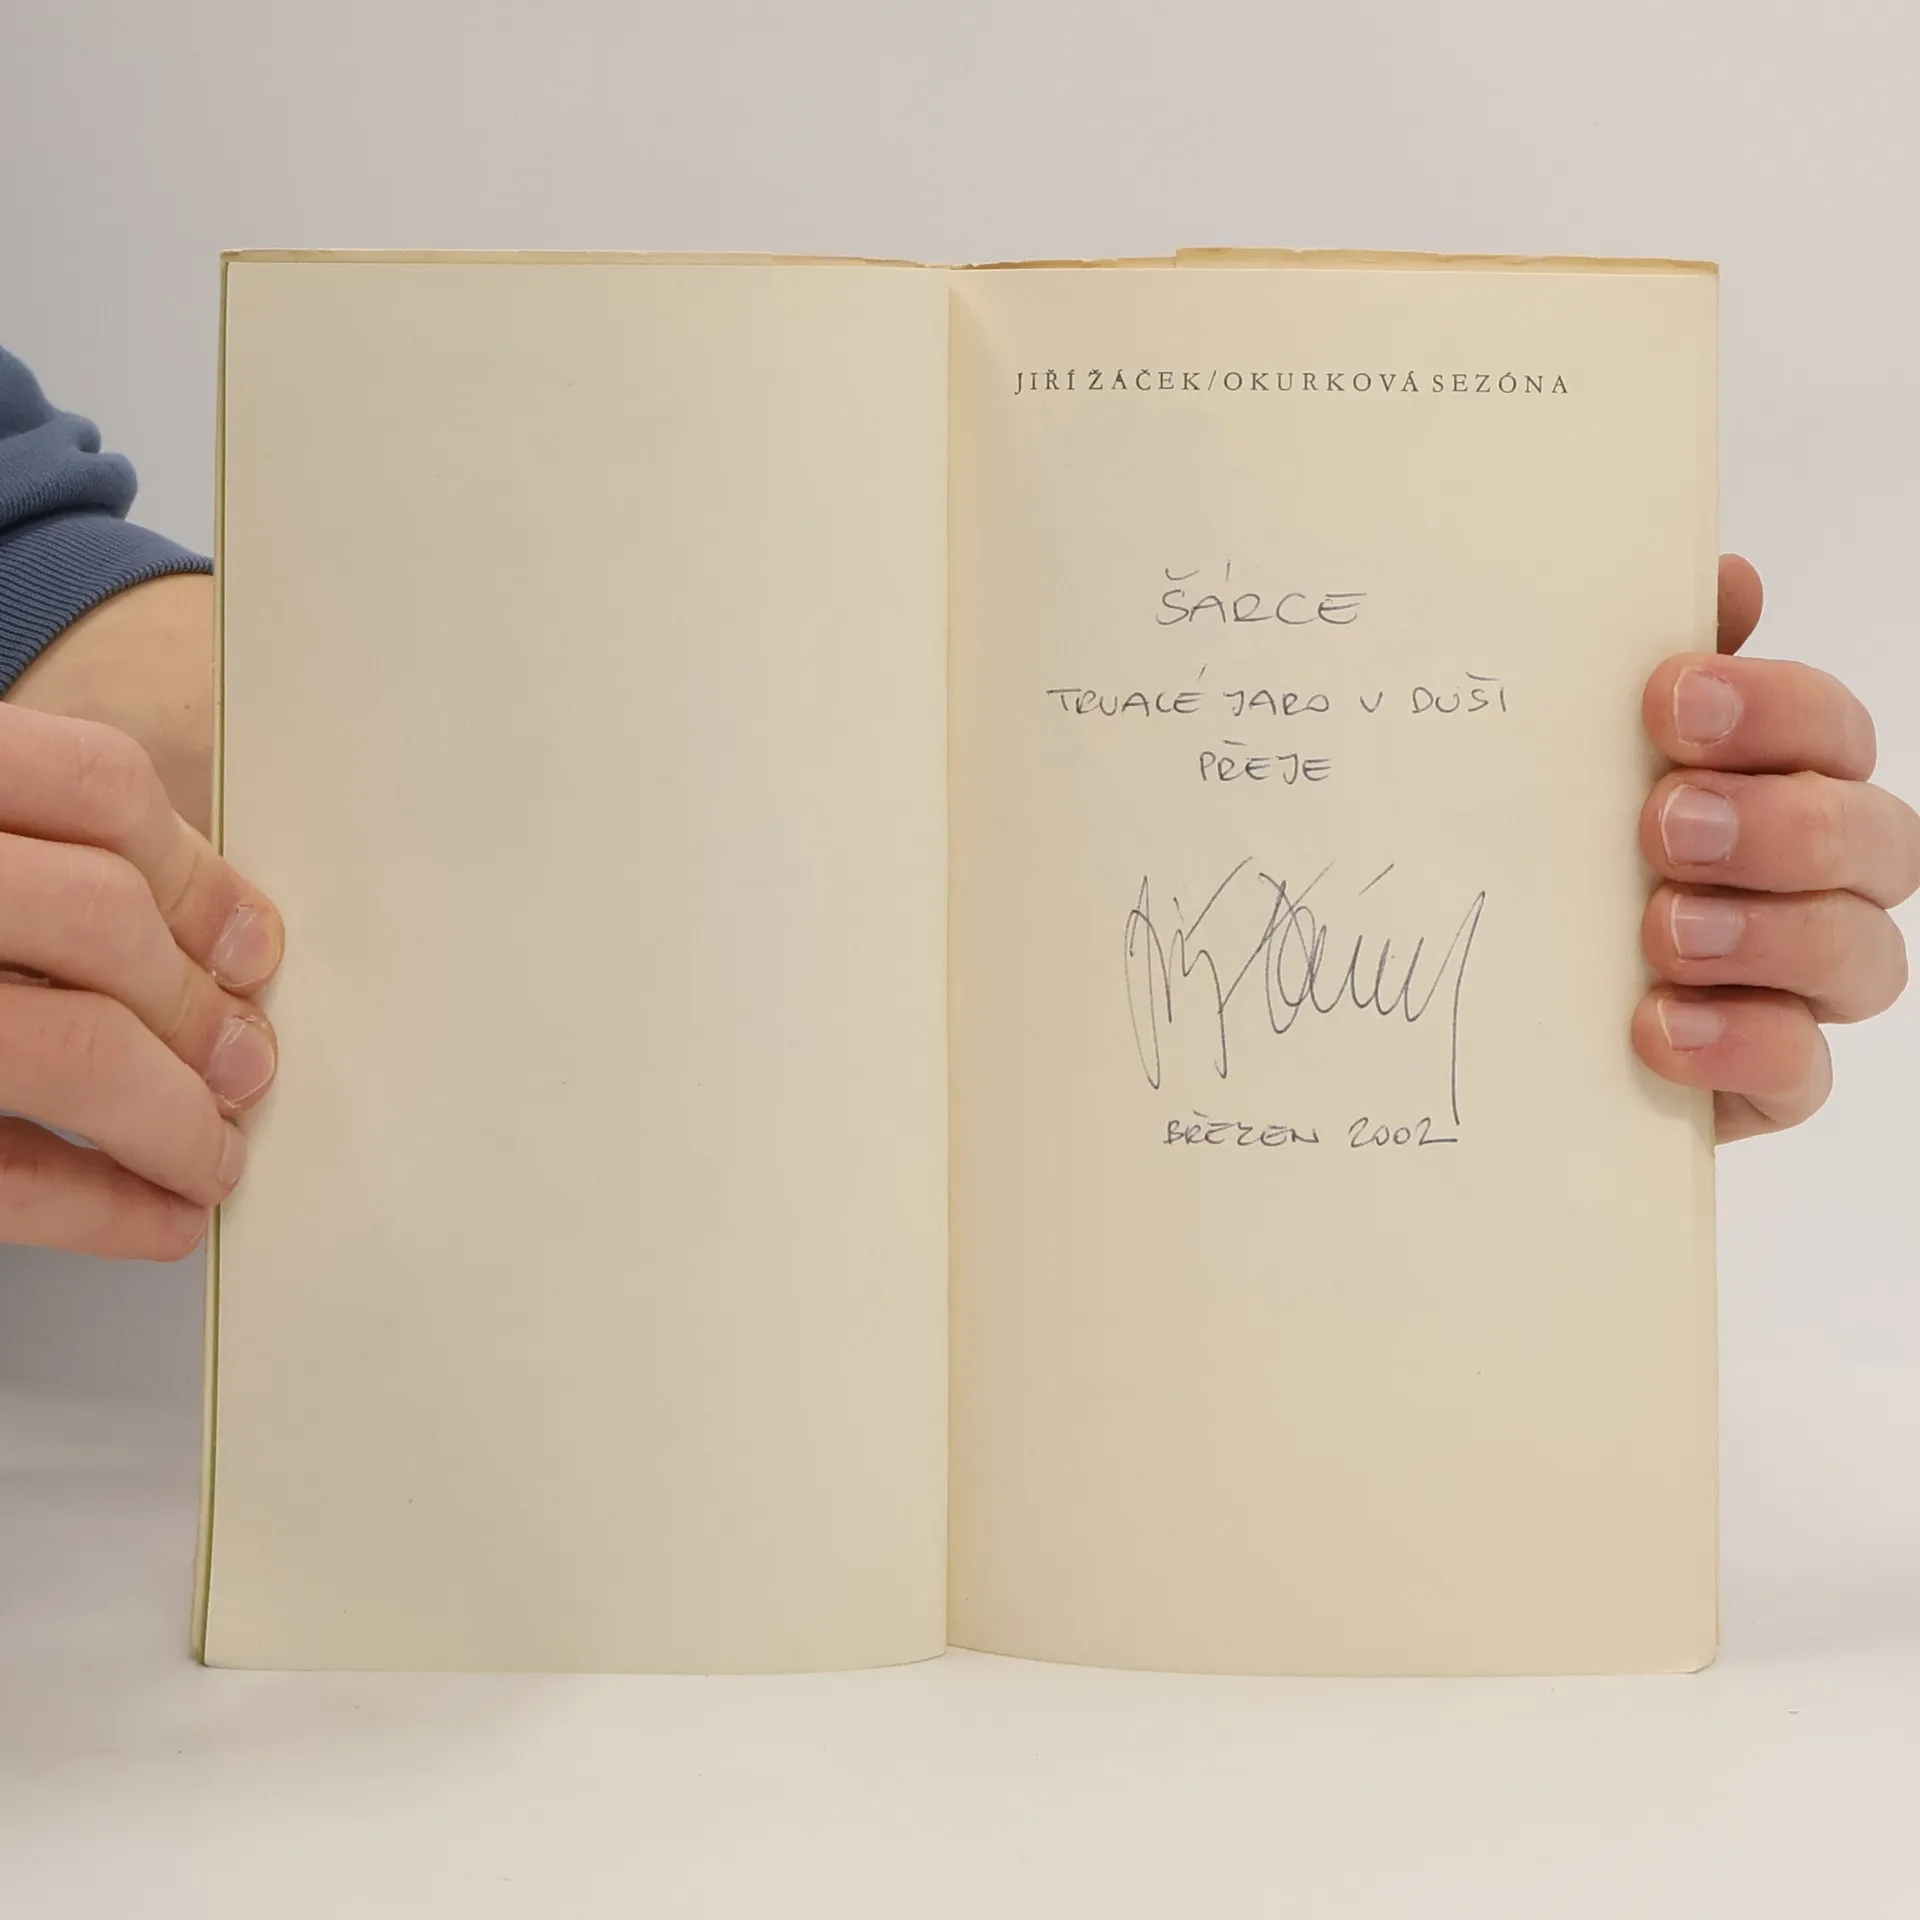 JIŘÍ ŽÁČEK/OKURKOVÁ SEZÓNA
ŠÁRCE
TRVALÉ JARO V DUŠI
PŘEJE
Jiří Žáček
BŘEZEN 2002